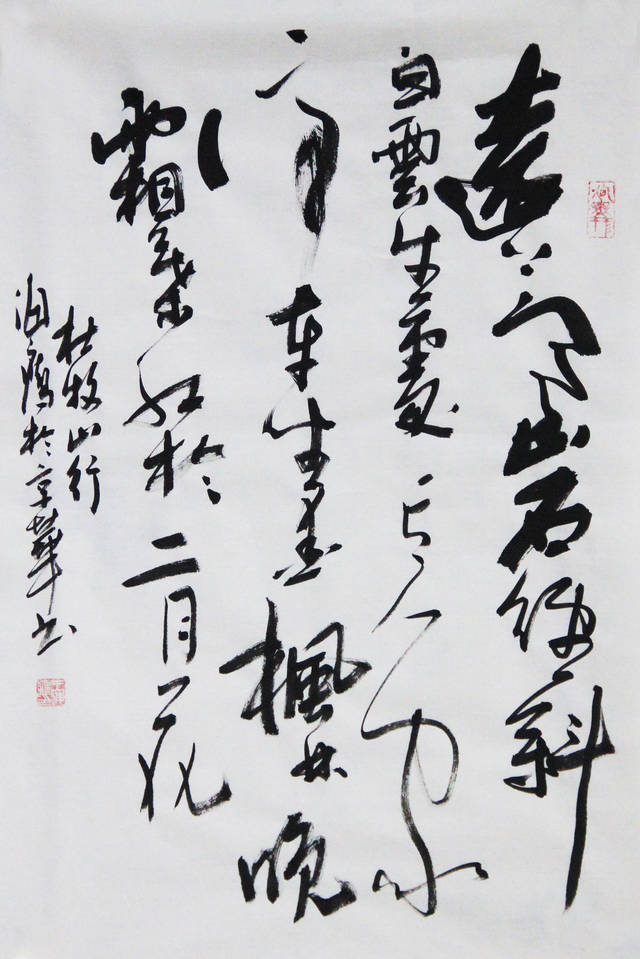 遠上寒山石徑斜
白雲生處有人家
停車坐愛楓林晚
霜葉紅於二月花
杜牧山行
於京華書